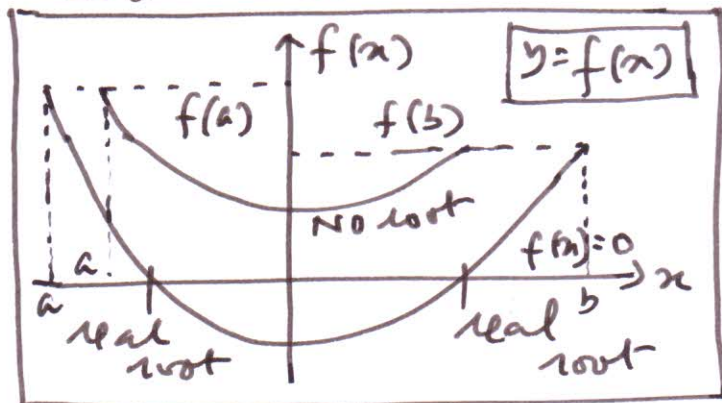 f(x)
y = f(x)
f(a)
f(b)
NO root
f(x)=0
a
a
b
x
real
root
real
root